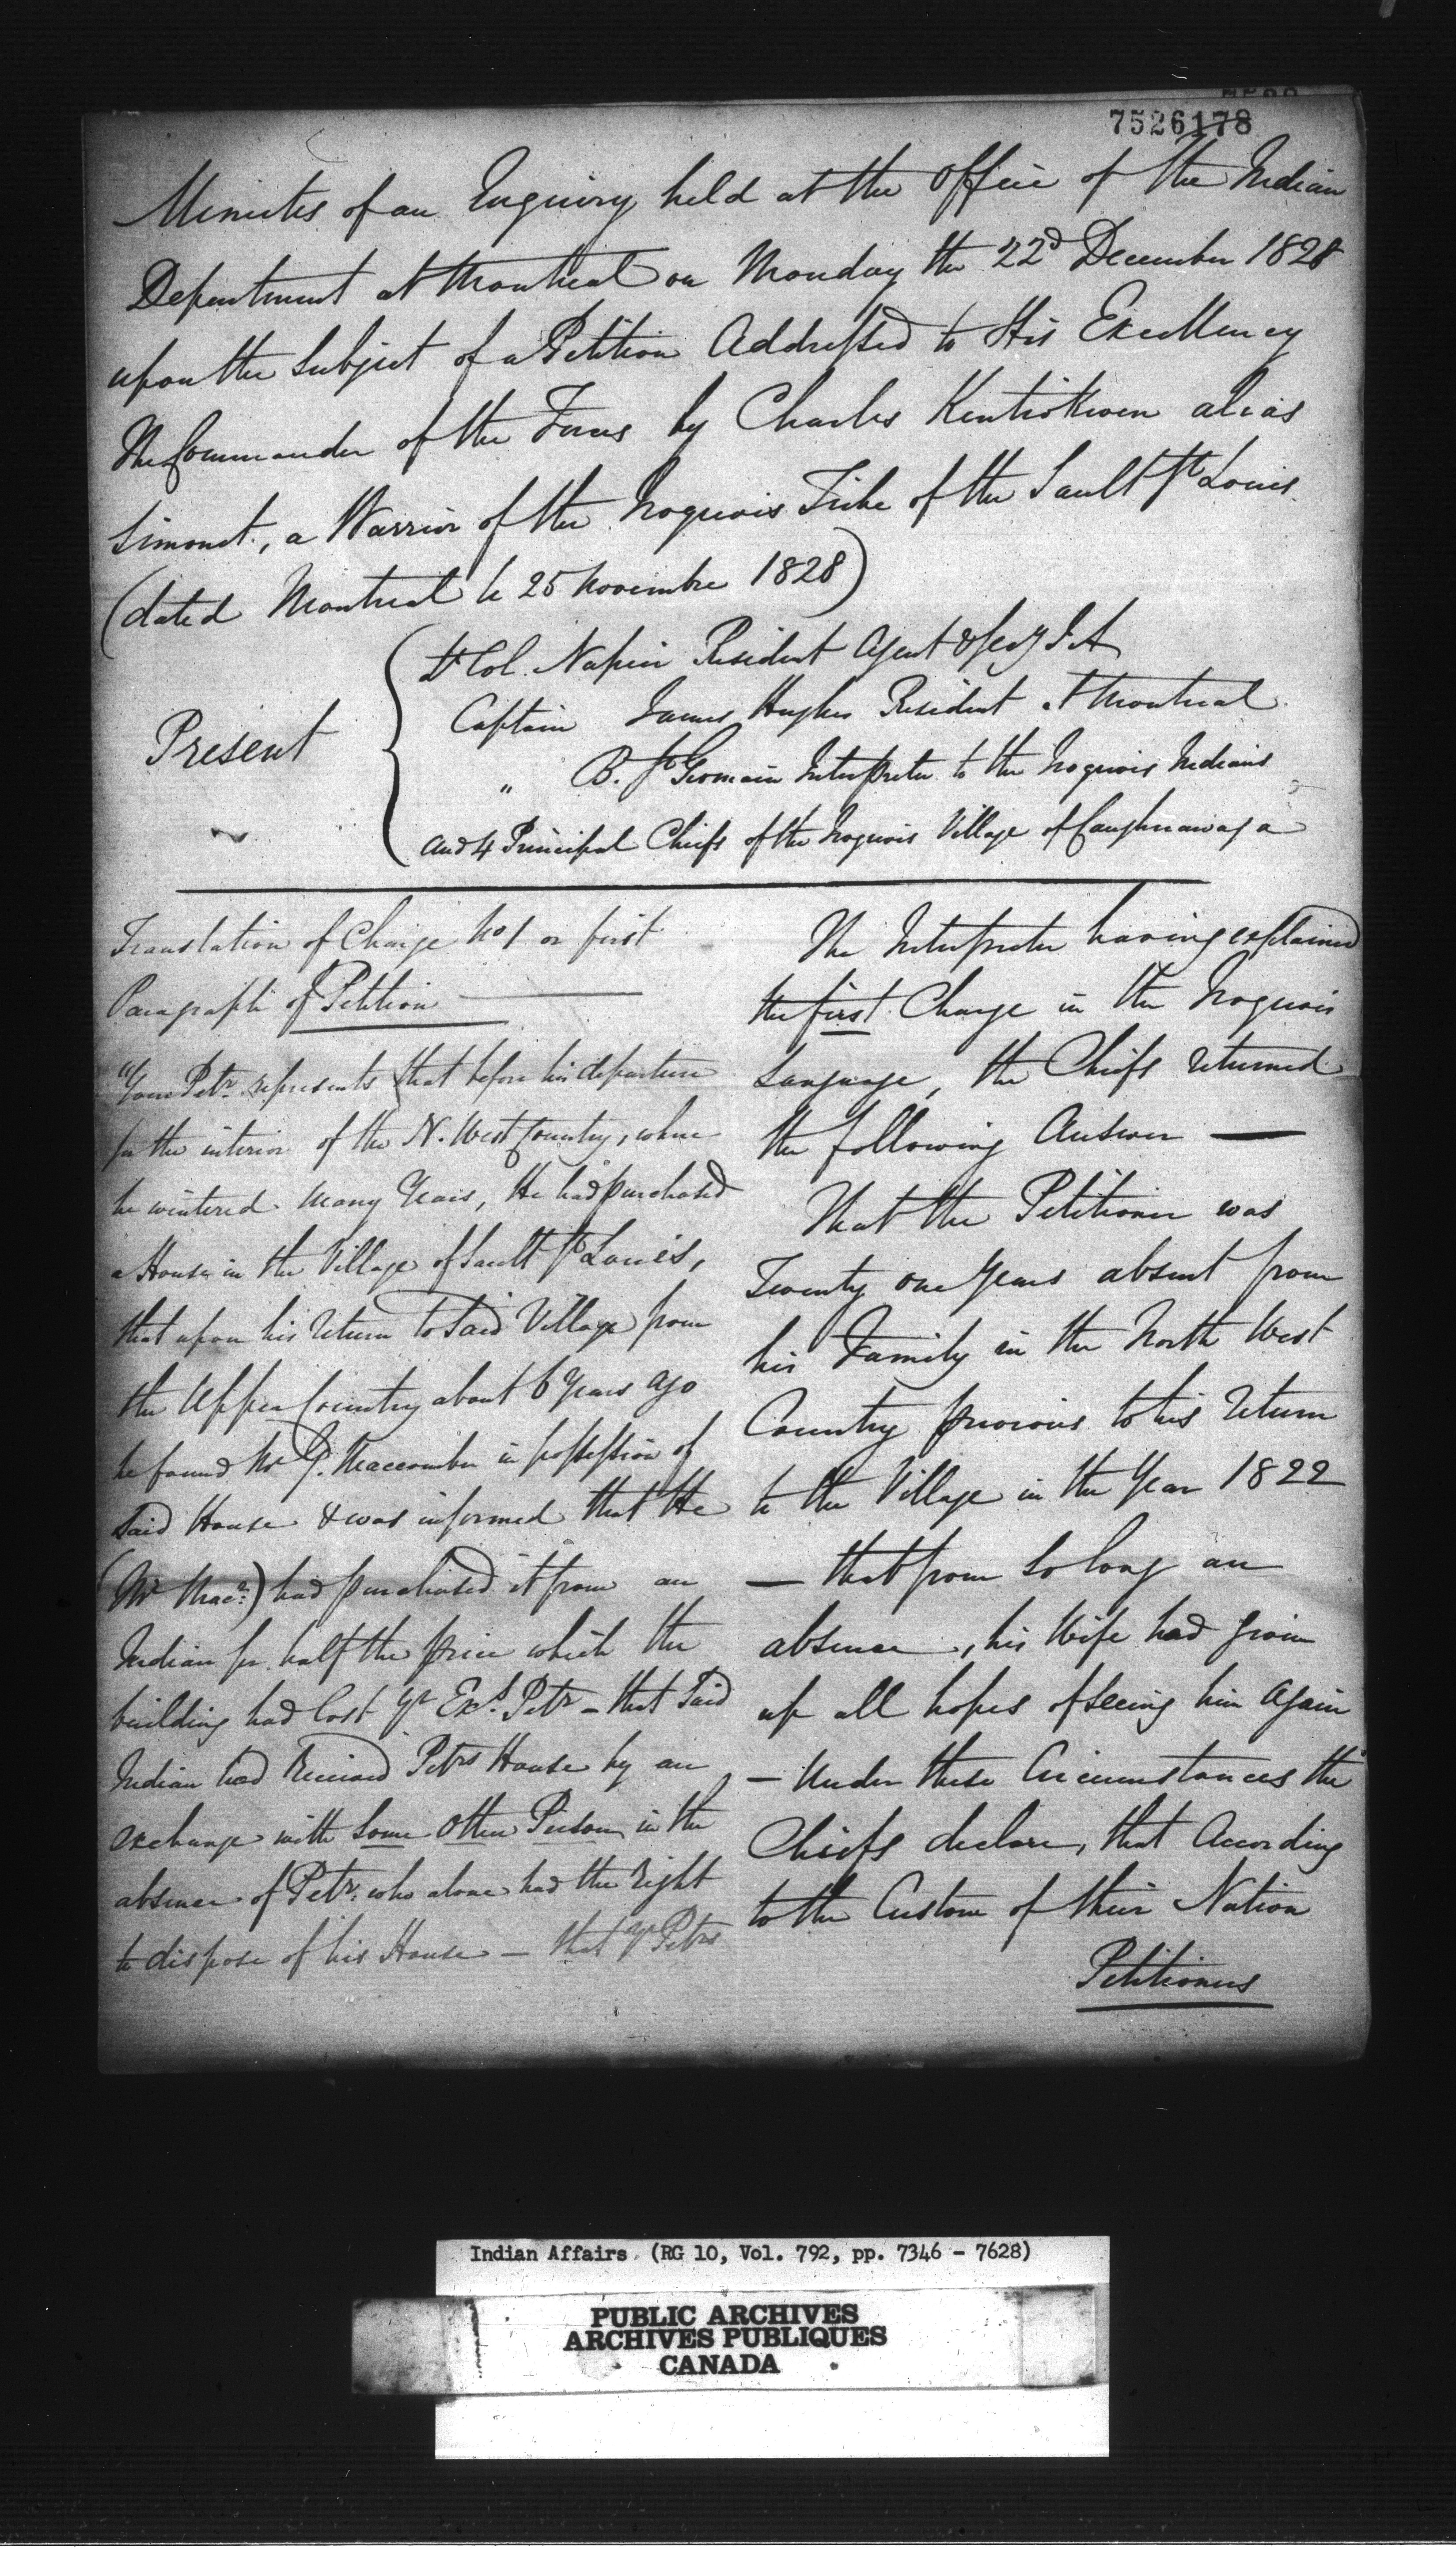 7526178
Minutes of an Enquiry held at the Office of the Indian
Department at Montreal on Monday the 22d December 1828
upon the Subject of a Petition Addressed to His Excellency
The Commander of the Forces by Charles Kentiokwen alias
Simonet, a Warrior of the Iroquois Tribe of the Sault St Louis
(dated Montreal le 25 Novembre 1828)
Present
Lt Col. Napier Resident Agent & Secy I A
Captain James Hughes Resident at Montreal
" B. St Germain Interpreter to the Iroquois Indians
and 4 Principal Chiefs of the Iroquois Village of Caughnawaga
Translation of Charge No 1 or first
Paragraph of Petition
"Your Petr. represents that before his departure
for the interior of the N. West Country, where
he wintered many Years, He had purchased
a House in the Village of Sault St Louis,
that upon his return to said Village from
the Upper Country about 6 Years ago
he found Mr G. Maccomber in possession of
said House & was informed that He
(Mr Macr.) had purchased it from an
Indian for half the price which the
building had Cost Yr Exs. Petr - that said
Indian had Received Petrs House by an
exchange with Some Other Person in the
absence of Petr. who alone had the right
to dispose of his House - that Yr Petrs
The Interpreter having explained
the first Charge in the Iroquois
Language, the Chiefs returned
the following Answer —
That the Petitioner was
Twenty one Years absent from
his Family in the North West
Country previous to his return
to the Village in the Year 1822
— that from So long an
absence, his Wife had given
up all hopes of seeing him Again
— Under these Circumstances the
Chiefs declare, that According
to the Custom of their Nation
Petitioners
Indian Affairs. (RG 10, Vol. 792, pp. 7346 - 7628)
PUBLIC ARCHIVES
ARCHIVES PUBLIQUES
CANADA